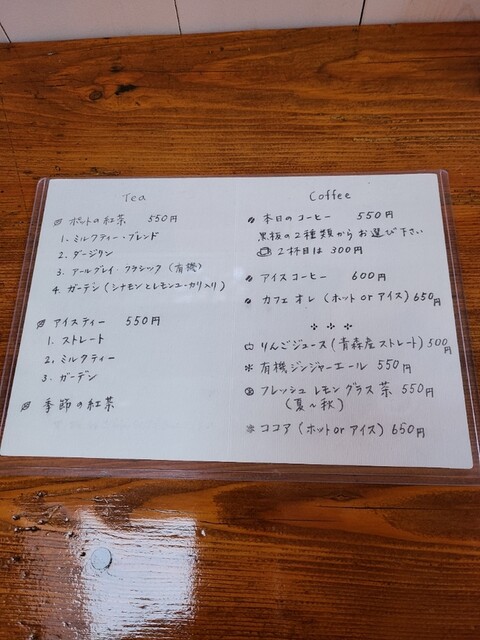 Tea
ポットの紅茶 550円
1. ミルクティー・ブレンド
2. ダージリン
3. アールグレイ・クラシック (有機)
4. ガーデン (シナモンとレモンユーカリ入り)
アイスティー 550円
1. ストレート
2. ミルクティー
3. ガーデン
季節の紅茶
Coffee
本日のコーヒー 550円
黒板の2種類からお選び下さい
2杯目は 300円
アイスコーヒー 600円
カフェオレ (ホット or アイス) 650円
りんごジュース (青森産ストレート) 500円
有機ジンジャーエール 550円
フレッシュ レモングラス茶 550円
(夏〜秋)
ココア (ホット or アイス) 650円